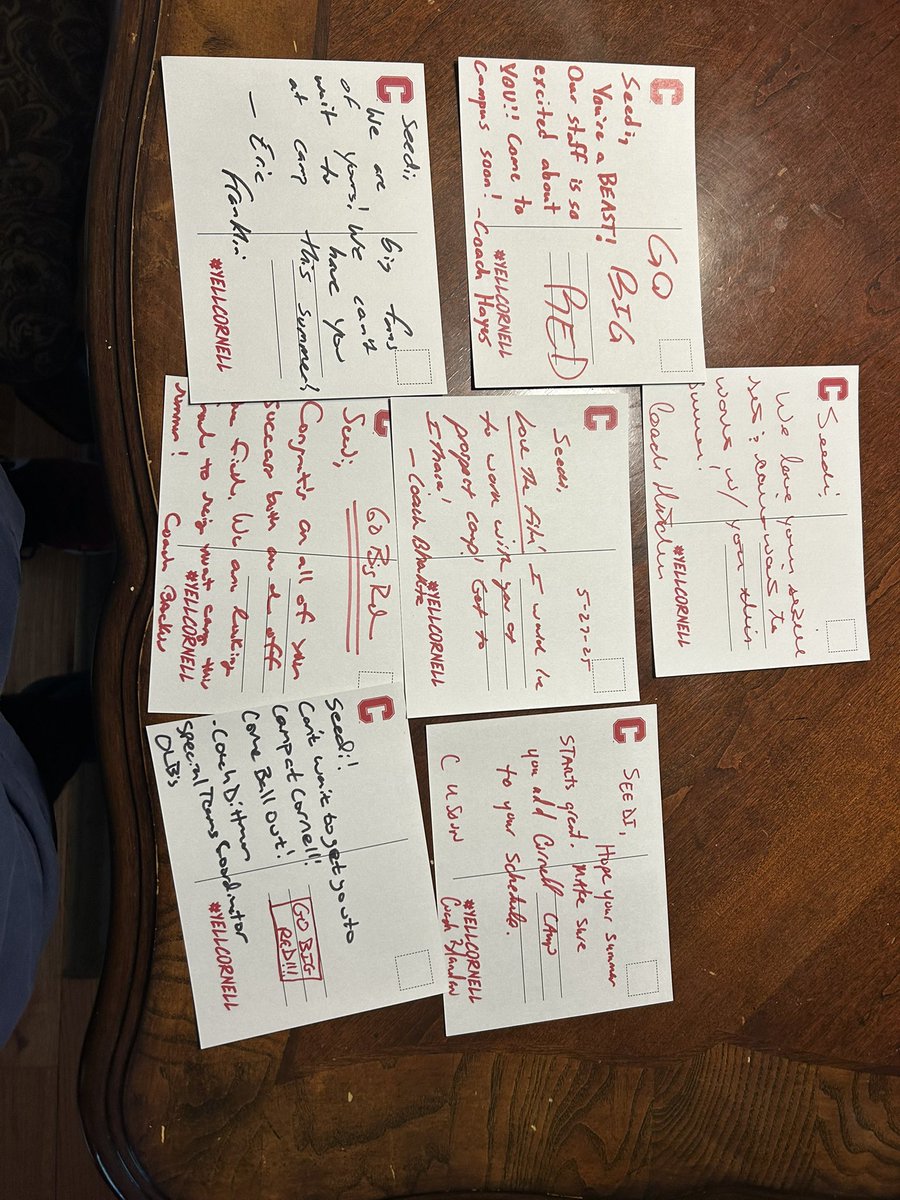 C
Seedi,
We are big fans
of yours! We can't
wait to have you
at camp this summer!
— Eric
Franklin
#YELLCORNELL
C
GO
BIG
RED
Seedi,
You're a BEAST!
Our staff is so
excited about
YOU!! Come to
campus soon! - Coach Hayes
#YELLCORNELL
C
Seedi,
We love your skill
set & can't wait to
work w/ you this
summer!
Coach
#YELLCORNELL
C
5-27-25
Love the film! I would love
to work with you at
prospect camp! Get to
Ithaca!
- Coach
#YELLCORNELL
C
Go Big Red
Seedi,
Congrats on all of your
success both on & off
the field. We are looking
forward to seeing you at camp this
summer!
Coach
#YELLCORNELL
C
Seedi!
Can't wait to get you to
camp at Cornell!
Come Ball Out!
- Coach Dittman
Special Teams Coordinator
OLB's
GO BIG
RED!!!
#YELLCORNELL
C
SEEDI,
Hope your summer
STARTS great. MAKE sure
you add Cornell CAMP
to your Schedule.
C U Soon
Coach
#YELLCORNELL